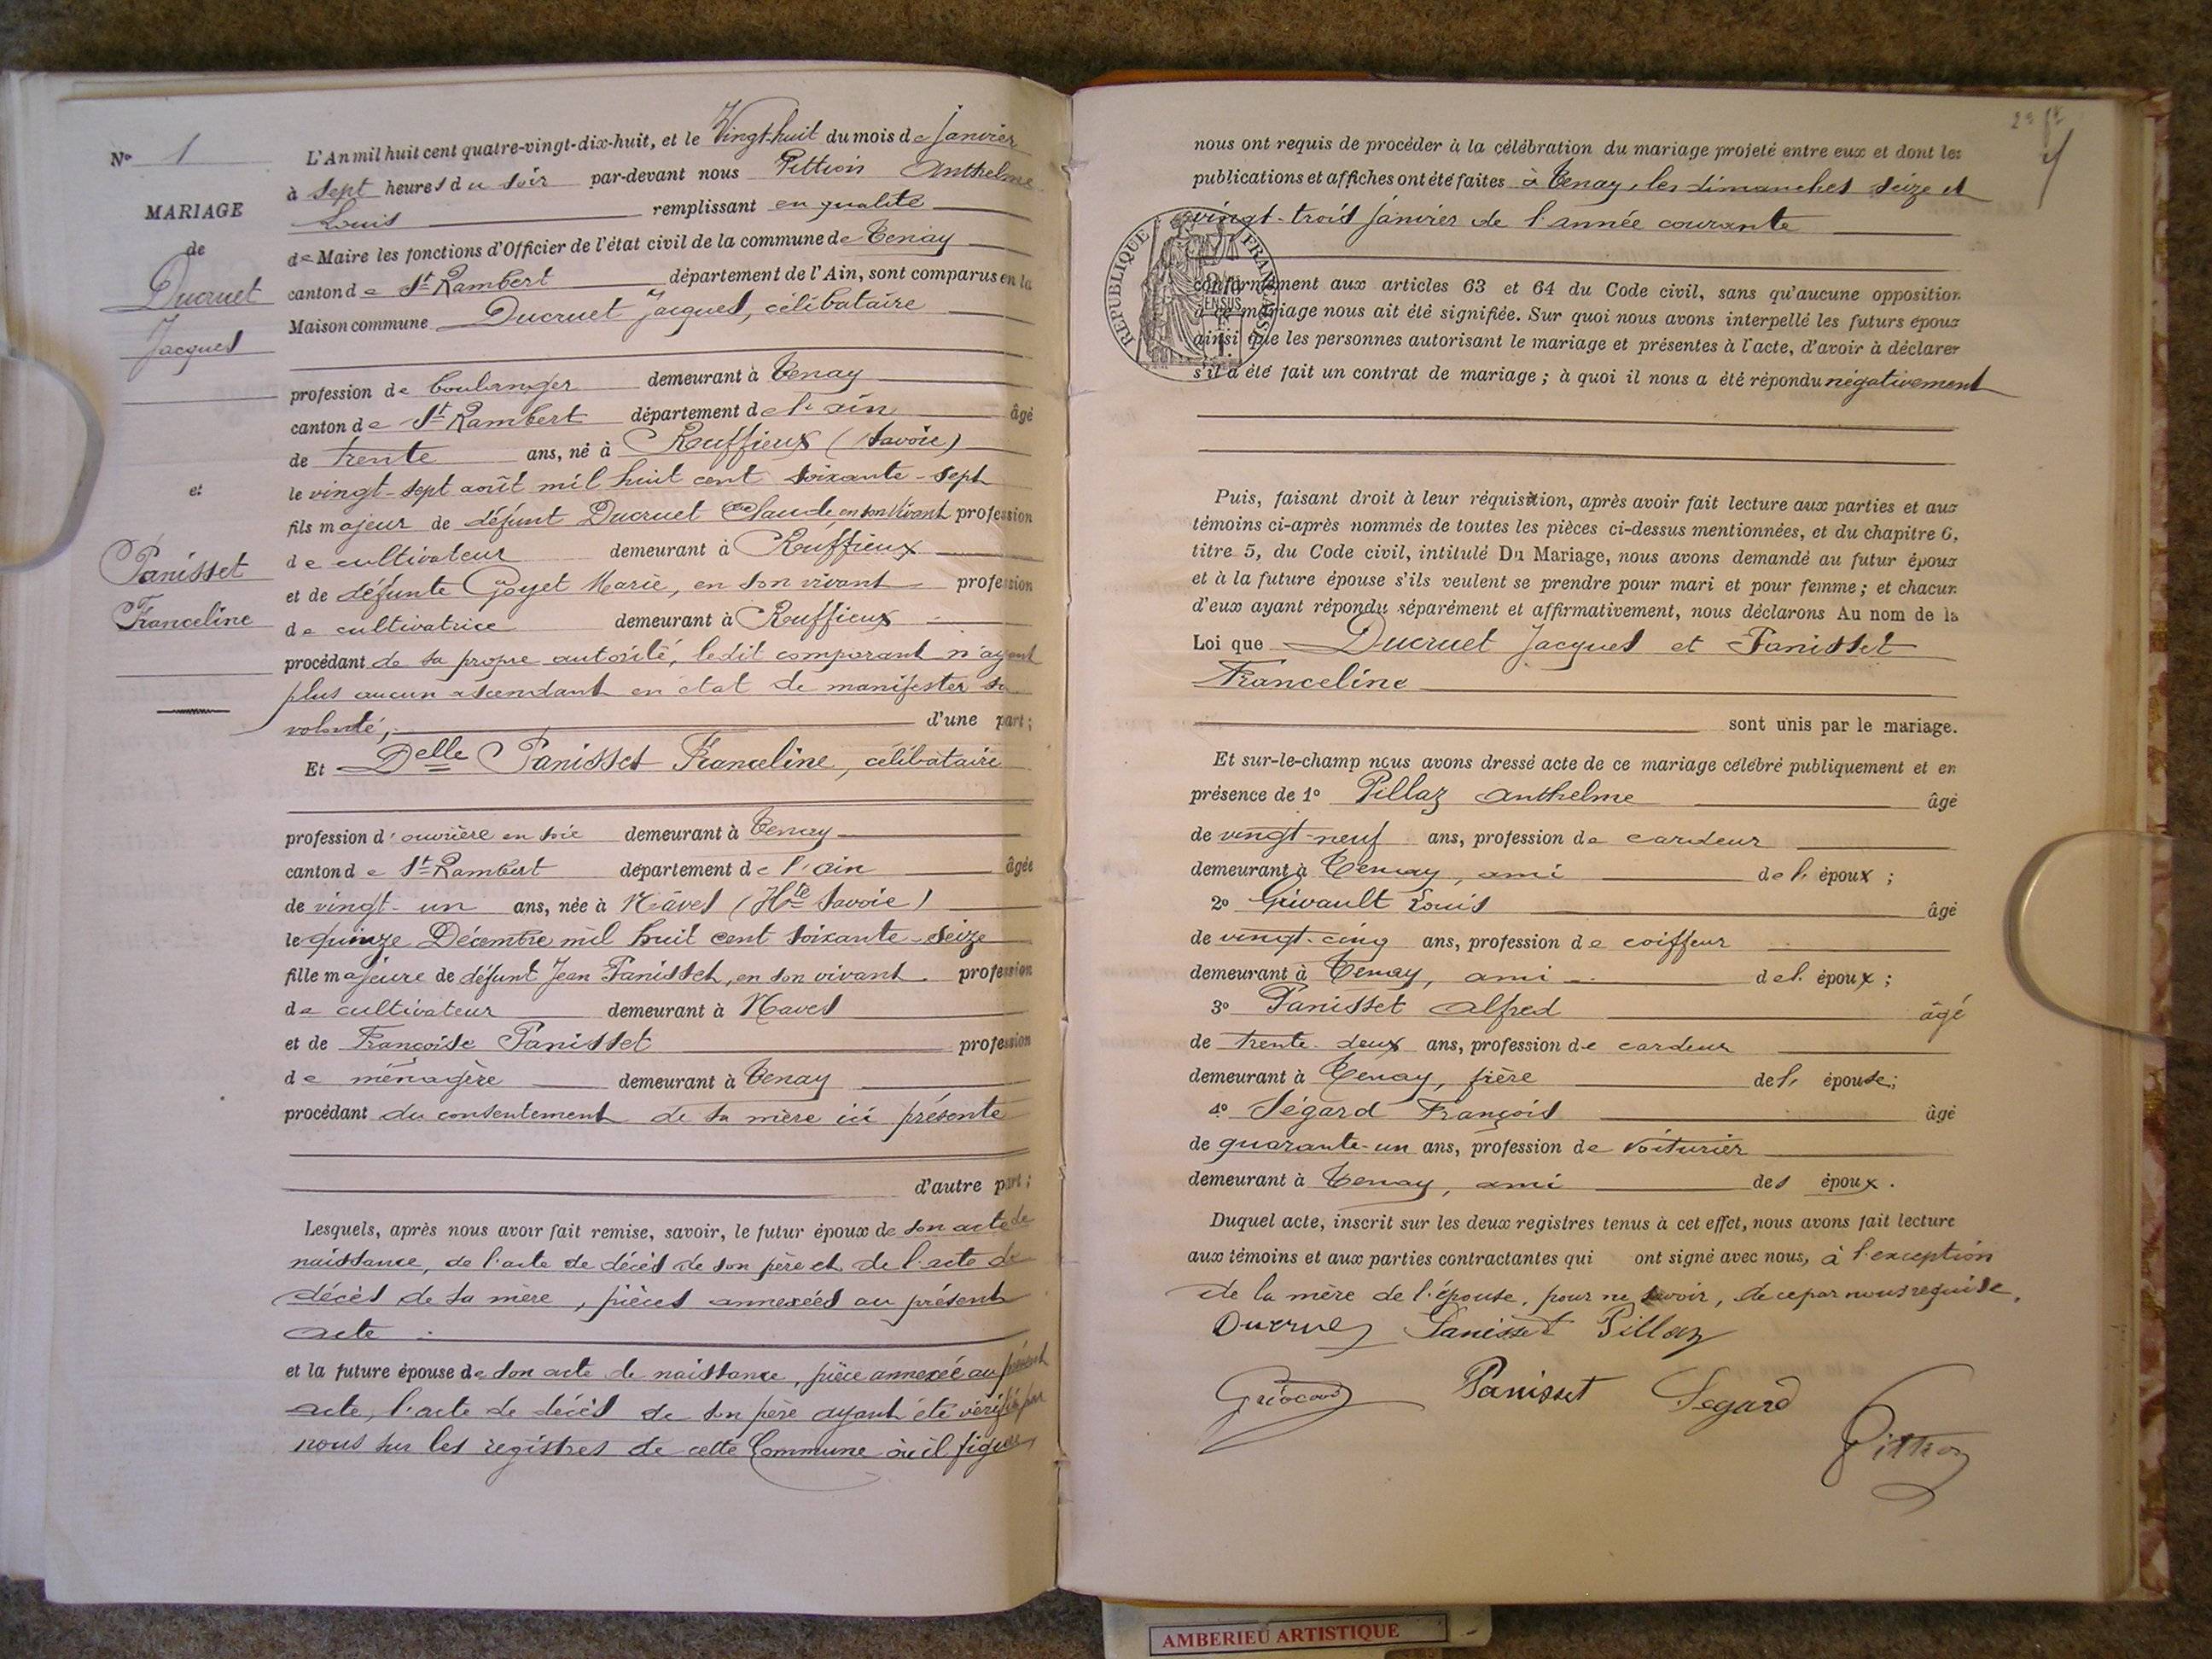 N° 1
MARIAGE
de
Ducruet
Jacques
et
Panisset
Franceline
L'An mil huit cent quatre-vingt-dix-huit, et le Vingt-huit du mois de Janvier
à sept heures du soir par-devant nous Pittion Anthelme
Louis remplissant en qualité
de Maire les fonctions d'Officier de l'état civil de la commune de Tenay
canton de St Rambert département de l'Ain, sont comparus en la
Maison commune Ducruet Jacques, célibataire
profession de boulanger demeurant à Tenay
canton de St Rambert département de l'ain âgé
de trente ans, né à Ruffieux (Savoie)
le vingt-sept août mil huit cent soixante-sept
fils majeur de défunt Ducruet Claude en son vivant profession
de cultivateur demeurant à Ruffieux
et de défunte Goyet Marie, en son vivant profession
de cultivatrice demeurant à Ruffieux
procédant de sa propre autorité, ledit comparant n'ayant
plus aucun ascendant en état de manifester sa
volonté, d'une part;
Et Delle Panisset Franceline, célibataire
profession d'ouvrière en soie demeurant à Tenay
canton de St Rambert département de l'ain âgée
de vingt-un ans, née à Nâves (Hte Savoie)
le quinze Décembre mil huit cent soixante-seize
fille majeure de défunt Jean Panisset, en son vivant profession
de cultivateur demeurant à Naves
et de Françoise Panisset profession
de ménagère demeurant à Tenay
procédant du consentement de sa mère ici présente
d'autre part;
Lesquels, après nous avoir fait remise, savoir, le futur époux de son acte de
naissance, de l'acte de décès de son père et de l'acte de
décès de sa mère, pièces annexées au présent
acte.
et la future épouse de son acte de naissance, pièce annexée au présent
acte, l'acte de décès de son père ayant été vérifié par
nous sur les registres de cette Commune où il figure,
nous ont requis de procéder à la célébration du mariage projeté entre eux et dont les
publications et affiches ont été faites à Tenay, les dimanches seize et
vingt-trois janvier de l'année courante
RÉPUBLIQUE FRANÇAISE
conformément aux articles 63 et 64 du Code civil, sans qu'aucune opposition
à ce mariage nous ait été signifiée. Sur quoi nous avons interpellé les futurs époux
ainsi que les personnes autorisant le mariage et présentes à l'acte, d'avoir à déclarer
s'il a été fait un contrat de mariage; à quoi il nous a été répondu négativement
Puis, faisant droit à leur réquisition, après avoir fait lecture aux parties et aux
témoins ci-après nommés de toutes les pièces ci-dessus mentionnées, et du chapitre 6,
titre 5, du Code civil, intitulé Du Mariage, nous avons demandé au futur époux
et à la future épouse s'ils veulent se prendre pour mari et pour femme; et chacun
d'eux ayant répondu séparément et affirmativement, nous déclarons Au nom de la
Loi que Ducruet Jacques et Panisset
Franceline
sont unis par le mariage.
Et sur-le-champ nous avons dressé acte de ce mariage célébré publiquement et en
présence de 1° Pillaz Anthelme âgé
de vingt-neuf ans, profession de cardeur
demeurant à Tenay, ami de l'époux;
2° Grivault Louis âgé
de vingt-cinq ans, profession de coiffeur
demeurant à Tenay, ami de l'époux;
3° Panisset Alfred âgé
de trente-deux ans, profession de cardeur
demeurant à Tenay, frère de l'épouse;
4° Ségard François âgé
de quarante-un ans, profession de voiturier
demeurant à Tenay, ami des époux.
Duquel acte, inscrit sur les deux registres tenus à cet effet, nous avons fait lecture
aux témoins et aux parties contractantes qui ont signé avec nous, à l'exception
de la mère de l'épouse, pour ne savoir, de ce par nous requise.
Ducruet Panisset Pillaz
Panisset Segard
Pittion
AMBERIEU ARTISTIQUE